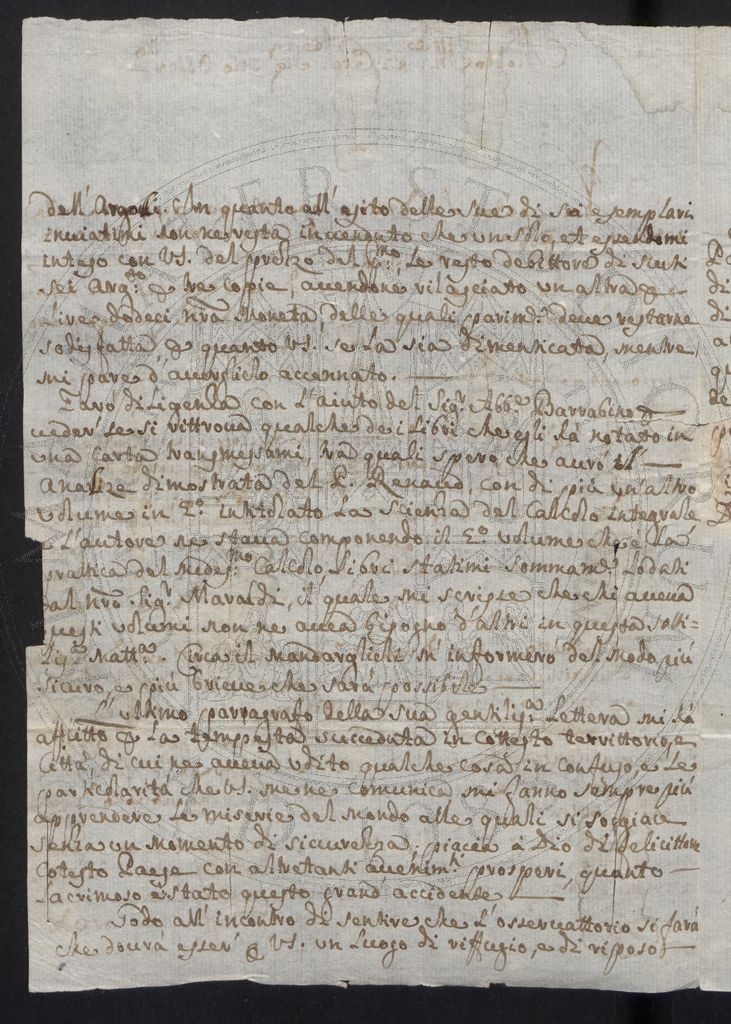 dell' Argoli. In quanto all' esito delle sue di sei esemplari
inviatimi non ne resta invenduto che un solo, et essendomi
inteso con VS. del prezzo del le resto debittore di
sei e tre copie, avendone rilasciato un altra
Lire dodeci nrã Moneta, delle quali parimᵉ. deve restarne
sodisfatta quanto VS. se la sia dimenticata, mentre
mi pare d' averglielo accennato.
Farò diligenza con l' aiuto del Sigʳ. Abbᵉ. Barrabino
veder se si rittrova qualche de i Libri che egli hà notato in
una Carta transmessami, trà quali spero che avrò il
Analise dimostrata del P. Renaud, con di più un' altro
volume in intitolato la Scienza del Calcolo integrale
e l' autore ne stava componendo il 2º. volume che è la
prattica del medesᵐᵒ Calcolo, libri stati mi sommamᵉ. lodati
dal nrõ Sigʳ. Maraldi, il quale mi scrisse che chi aveva
questi volumi non ne avea bisogno d' altri in questa
Circa il mandarglieli m' informerò del modo più
sicuro, e più brieve che sarà possibile
L' ultimo parragrafo della sua gentilisᵐᵃ Lettera mi hà
afflitto la tempesta succeduta in cottesto territtorio, e
Città, di cui ne aveva udito qualche cosa in confuso, e le
particolarità che VS. me ne comunica mi fanno sempre più
apprendere le miserie del mondo alle quali si soggiace
senza un momento di sicurezza; piacia à Dio di felicittare
cotesto Paese con altretanti avenimᵗⁱ prosperi, quanto
lacrimoso è stato questo grand' accidente
Godo all' incontro di sentire che l' osservattorio si farà
che dovrà esser' VS. un luogo di riffugio, e di riposo